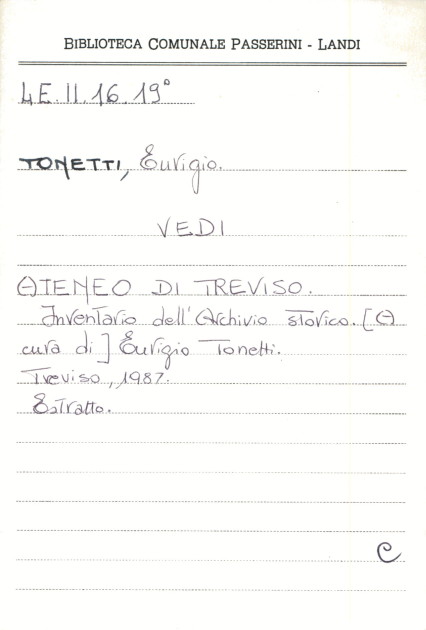 BIBLIOTECA COMUNALE PASSERINI - LANDI
4E.II.16.19°
TONETTI, Eurigio.
VEDI
ATENEO DI TREVISO.
Inventario dell'Archivio storico. [A
cura di] Eurigio Tonetti.
Treviso, 1987.
Estratto.
C